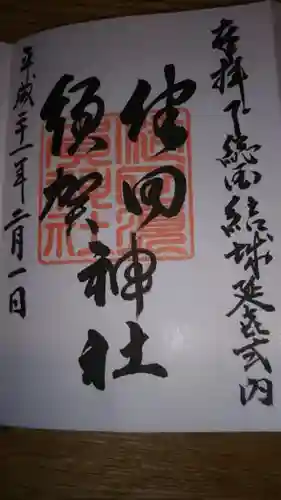 奉拝 下総国結城延喜式内
健田
須賀
神社
平成三十一年二月一日